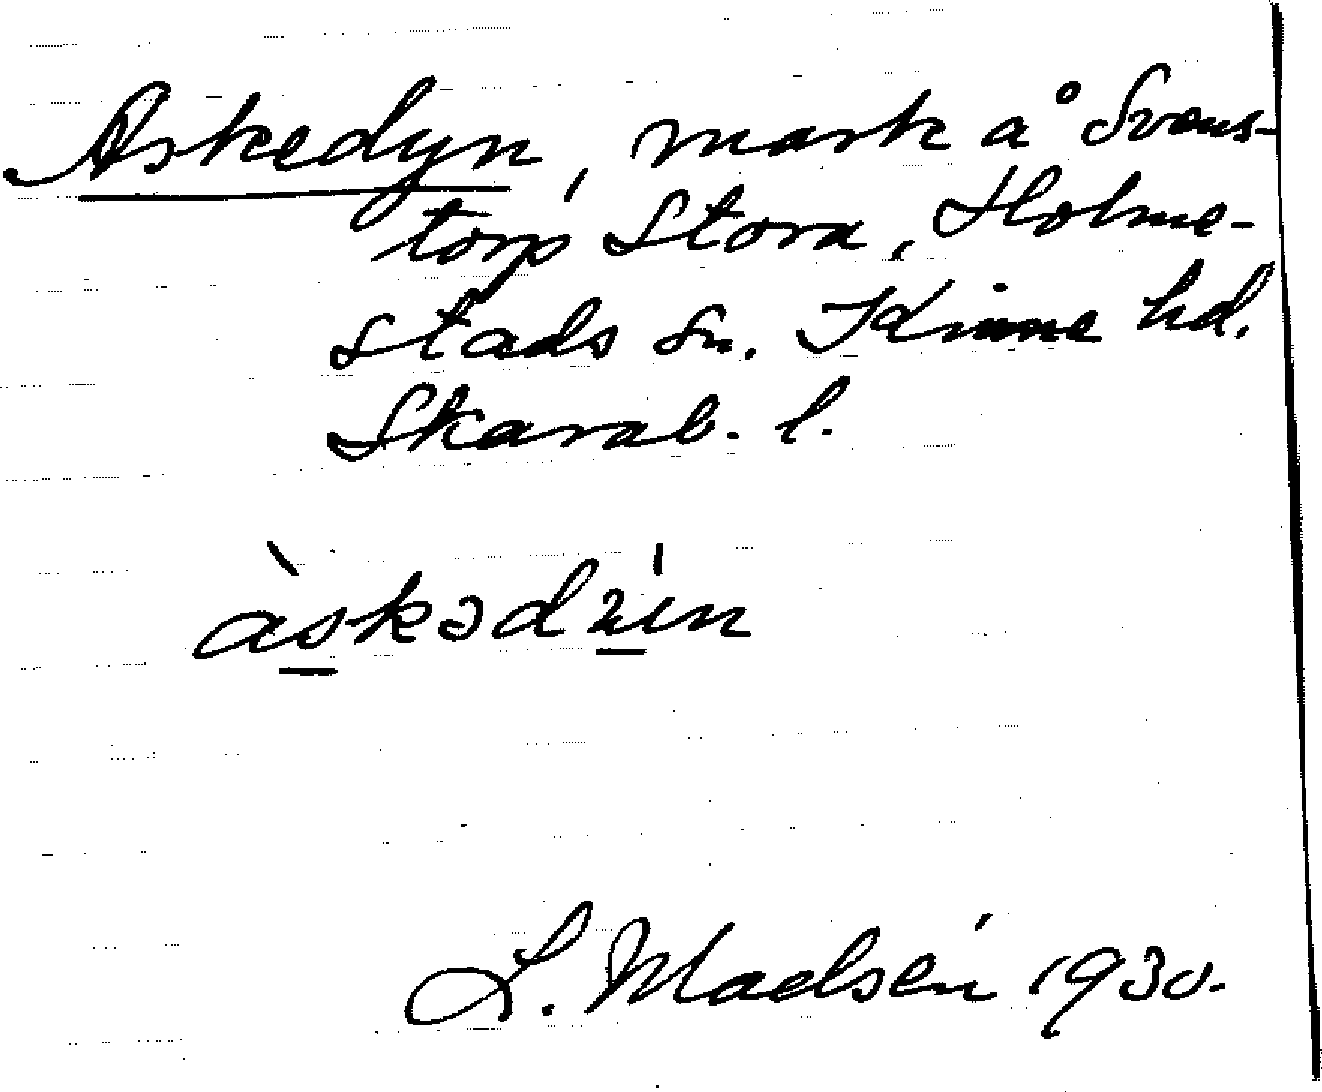 Askedyn, mark å Svens-
torp Stora, Holme-
stads sn. Kinne hd.
Skarab. l.
àskədı̷́n
L. Madsén 1930.